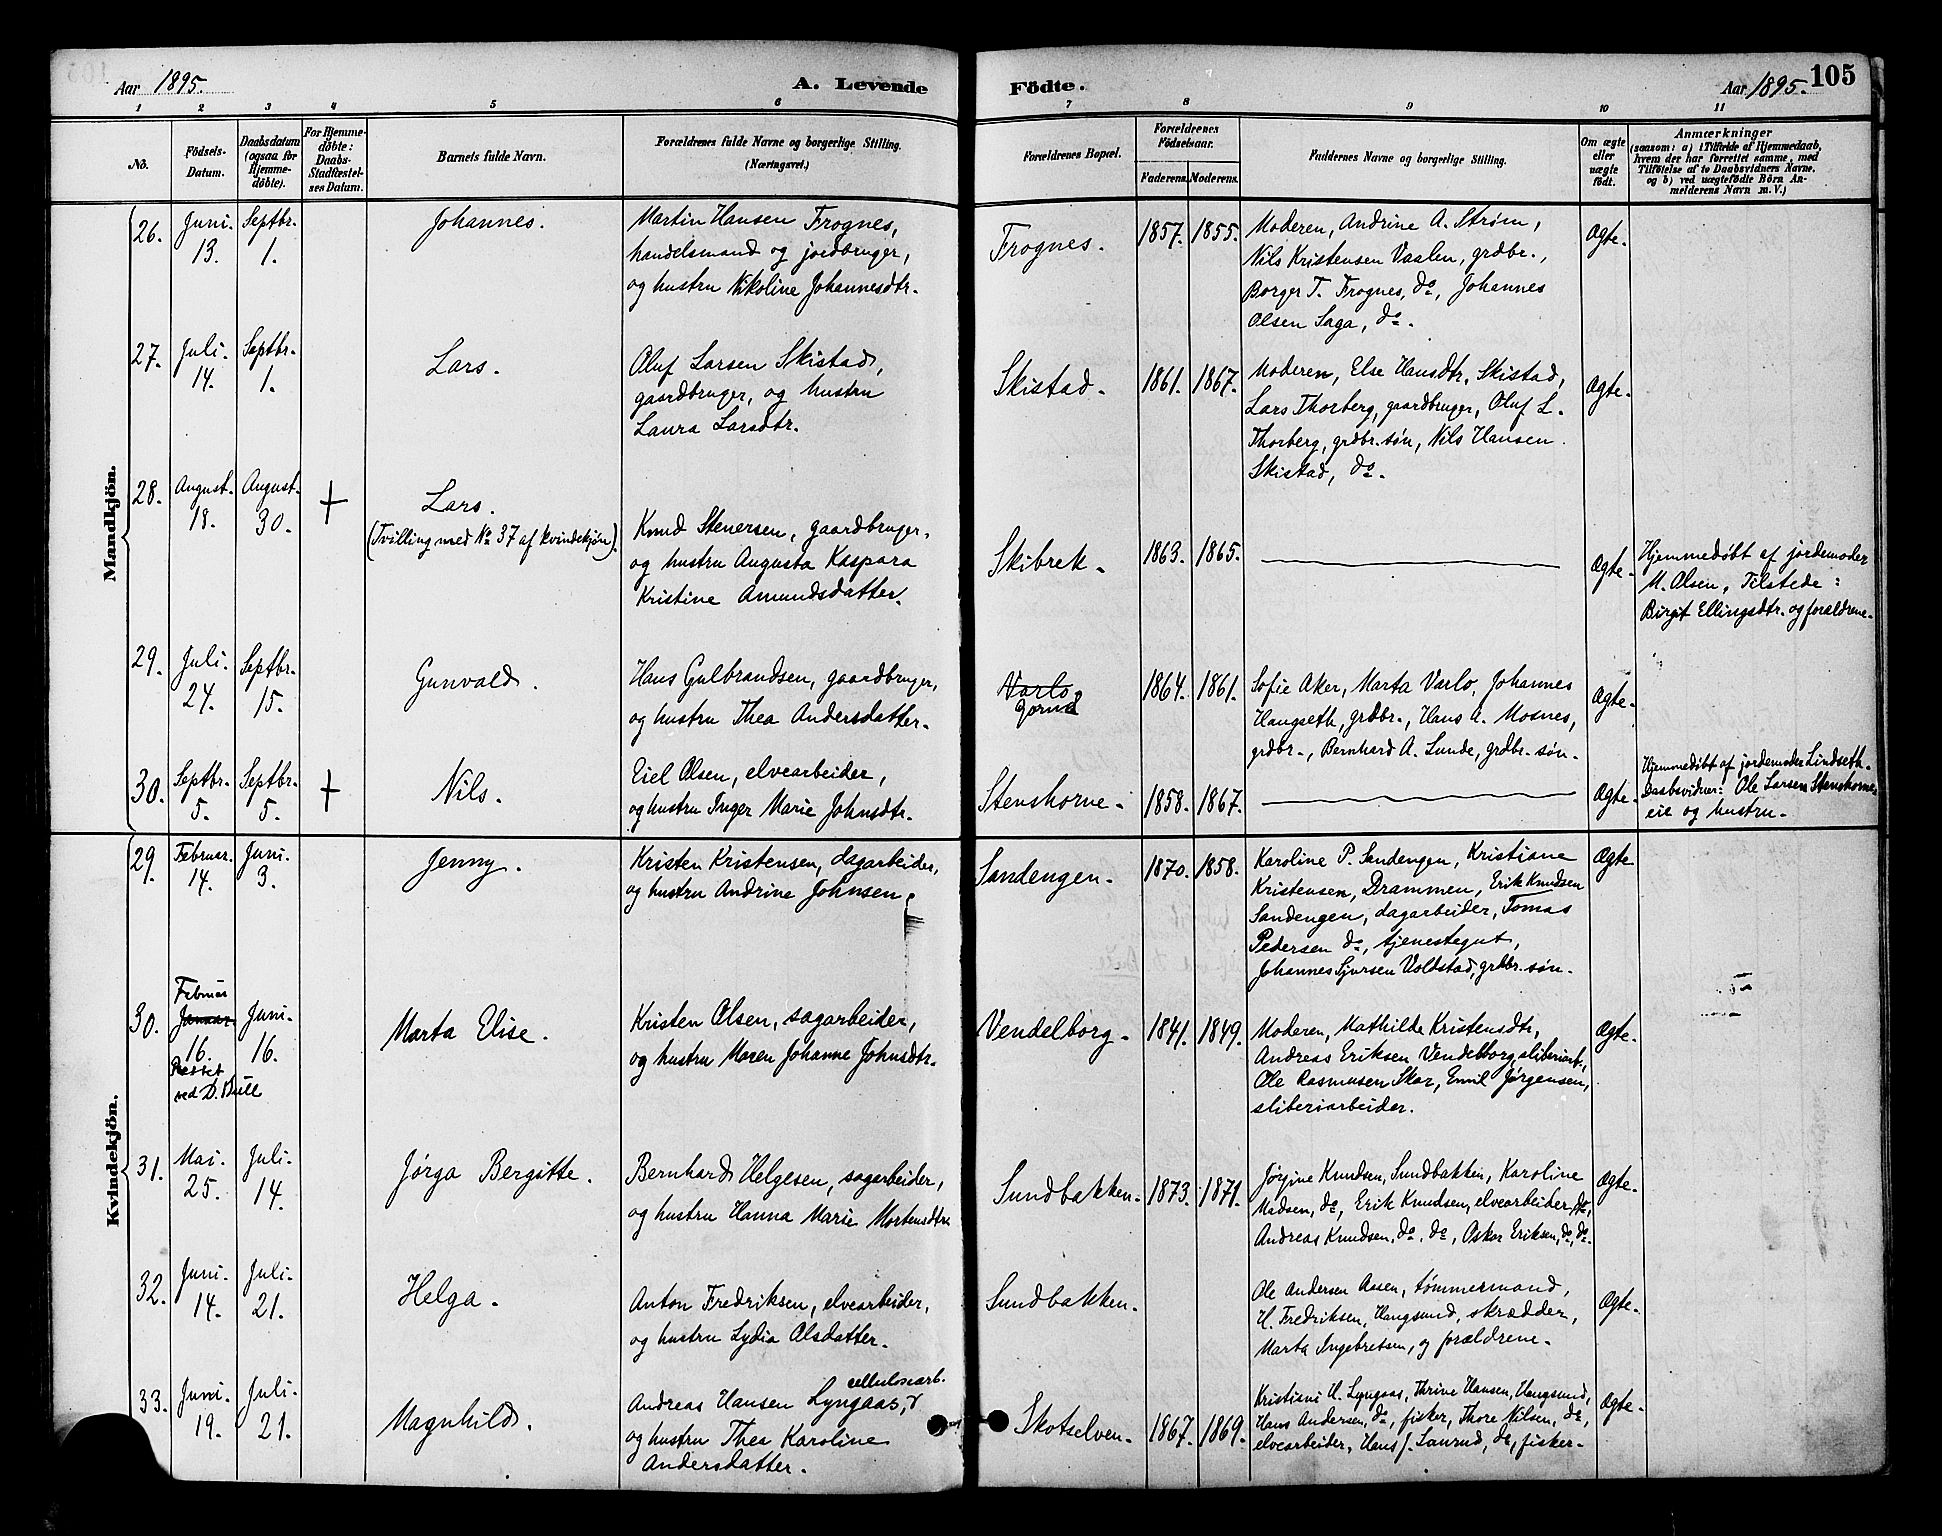 Aar 1895.
A. Levende
Födte.
Aar 1895.
105
1 2 3 4 5 6 7 8 9 10 11
No.
Födsels-
Datum.
Daabsdatum
(ogsaa for
Hjemme-
döbte).
For Hjemme-
döbte:
Daabs-
Stadfæstel-
ses Datum.
Barnets fulde Navn.
Forældrenes fulde Navne og borgerlige Stilling.
(Næringsvei.)
Forældrenes Bopæl.
Forældrenes
Födselsaar.
Faderens. Moderens.
Faddernes Navne og borgerlige Stilling.
Om ægte
eller
uægte
födt.
Anmærkninger
(saasom: a) i Tilfælde af Hjemmedaab,
hvem der har forrettet samme, med
Tilföielse af to Daabsvidners Navne,
og b) ved uægtefödte Börn An-
melderens Navn m. V.)
Mandkjön.
26.
Juni.
13.
Septbr.
1.
Johannes.
Martin Hansen Frognes,
handelsmand og jordbruger,
og hustru Nikoline Johannesdtr.
Frognes.
1857. 1855.
Moderen, Andrine A. Strøm,
Nils Kristensen Vaalen, grdbr.,
Borger T. Frognes, do, Johannes
Olsen Saga, do.
Ægte.
27.
Juli.
14.
Septbr.
1.
Lars.
Oluf Larsen Skistad,
gaardbruger, og hustru
Laura Larsdtr.
Skistad.
1861. 1867.
Moderen, Else Hansdtr. Skistad,
Lars Thorberg, gaardbruger, Oluf L.
Thorberg, grdbr. søn, Nils Hansen
Skistad, do.
Ægte.
28.
August.
18.
August.
30.
+
Lars.
(Tvilling med No 37 af kvindekjøn).
Knud Stenersen, gaardbruger,
og hustru Augusta Kaspara
Kristine Amundsdatter.
Skibrek.
1863. 1865.
Ægte.
Hjemmedøbt af jordemoder
M. Olsen, Tilstede:
Birgit Ellingsdtr. og forældrene.
29.
Juli.
24.
Septbr.
15.
Gunvald.
Hans Gulbrandsen, gaardbruger,
og hustru Thea Andersdatter.
Varlo
1864. 1861.
Sofie Aker, Marta Varlo, Johannes
Haugseth, grdbr., Hans A. Mosnes,
grdbr., Bernhard A. Lunde, grdbr. søn.
Ægte.
30.
Septbr.
5.
Septbr.
5.
+
Nils.
Eiel Olsen, elvearbeider,
og hustru Inger Marie Johnsdtr.
Stenshorne.
1858. 1867.
Ægte.
Hjemmedøbt af jordemoder Lindseth.
Daabsvidner: Ole Larsen Stenshorne-
eie og hustru.
Kvindekjön.
29.
Februar.
14.
Juni.
3.
Jenny.
Kristen Kristensen, dagarbeider,
og hustru Andrine Johnsen.
Sandengen.
1870. 1858.
Karoline P. Sandengen, Kristiane
Kristensen, Drammen, Erik Knudsen
Sandengen, dagarbeider, Tomas
Pedersen do, tjenestegut,
Johannes Sjursen Voldstad, grdbr. søn.
Ægte
30.
Februar
Januar
16.
Rettet
ved D. Bull
Juni.
16.
Marta Elise.
Kristen Olsen, sagarbeider,
og hustru Maren Johanne Johnsdtr.
Vendelborg.
1841. 1849.
Moderen, Mathilde Kristensdtr,
Andreas Eriksen Vendelborg, sliberiarb.,
Ole Rasmusen Skar, Emil Jørgensen,
sliberiarbeider.
Ægte.
31.
Mai.
25.
Juli.
14.
Jørga Bergitte.
Bernhard Helgesen, sagarbeider,
og hustru Hanna Marie Mortensdtr.
Sundbakken.
1873. 1871.
Jørgine Knudsen, Sundbakken, Karoline
Madsen, do, Erik Knudsen, elvearbeider, do,
Andreas Knudsen, do, do, Oskar Eriksen, do, do.
Ægte.
32.
Juni.
14.
Juli.
21.
Helga.
Anton Fredriksen, elvearbeider,
og hustru Lydia Olsdatter.
Sundbakken.
Ole Andersen Aasen, tømmermand,
H. Fredriksen, Haugsund, skrædder,
Marta Ingebretsen, og forældrene.
Ægte.
33.
Juni.
19.
Juli.
21.
Magnhild.
cellulosearb.
Andreas Hansen Lyngaas,
og hustru Thea Karoline
Andersdatter.
Skotselven.
1867. 1869.
Kristiane H. Lyngaas, Thrine Hansen, Haugsund,
Hans Andersen, do, fisker, Thore Nilsen, do,
elvearbeider, Hans J. Laurud, do, fisker.
Ægte.